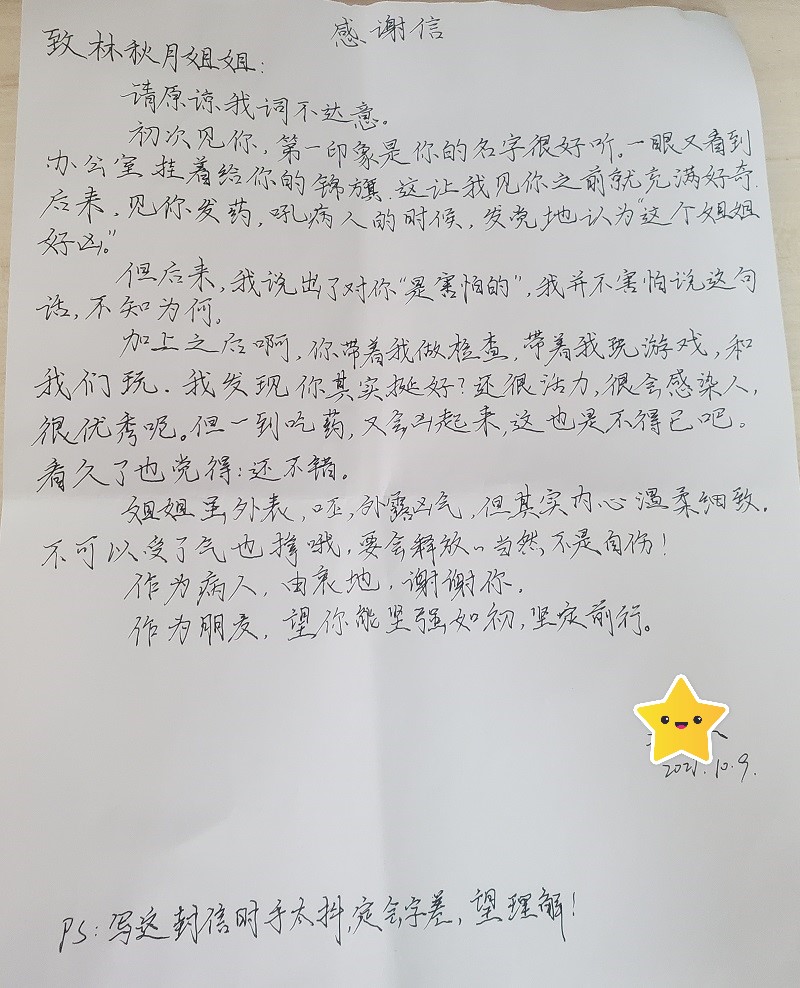 感谢信
致林秋月姐姐:
请原谅我词不达意。
初次见你,第一印象是你的名字很好听。一眼又看到
办公室挂着给你的锦旗.这让我见你之前就充满好奇.
后来,见你发药,吼病人的时候,发觉地认为“这个姐姐
好凶。”
但后来,我说出了对你“是害怕的”,我并不害怕说这句
话,不知为何。
加上之后啊,你带着我做检查,带着我玩游戏,和
我们玩.我发现你其实挺好?还很活力,很会感染人,
很优秀呢。但一到吃药,又会凶起来,这也是不得已吧。
看久了也觉得:还不错。
姐姐虽外表,呸,外露凶气,但其实内心温柔细致.
不可以受了气也撑哦,要会释放~当然,不是自伤!
作为病人,由衷地,谢谢你.
作为朋友,望你能坚强如初,坚定前行。
2021.10.9.
PS:写这封信时手太抖,定会字差,望理解!